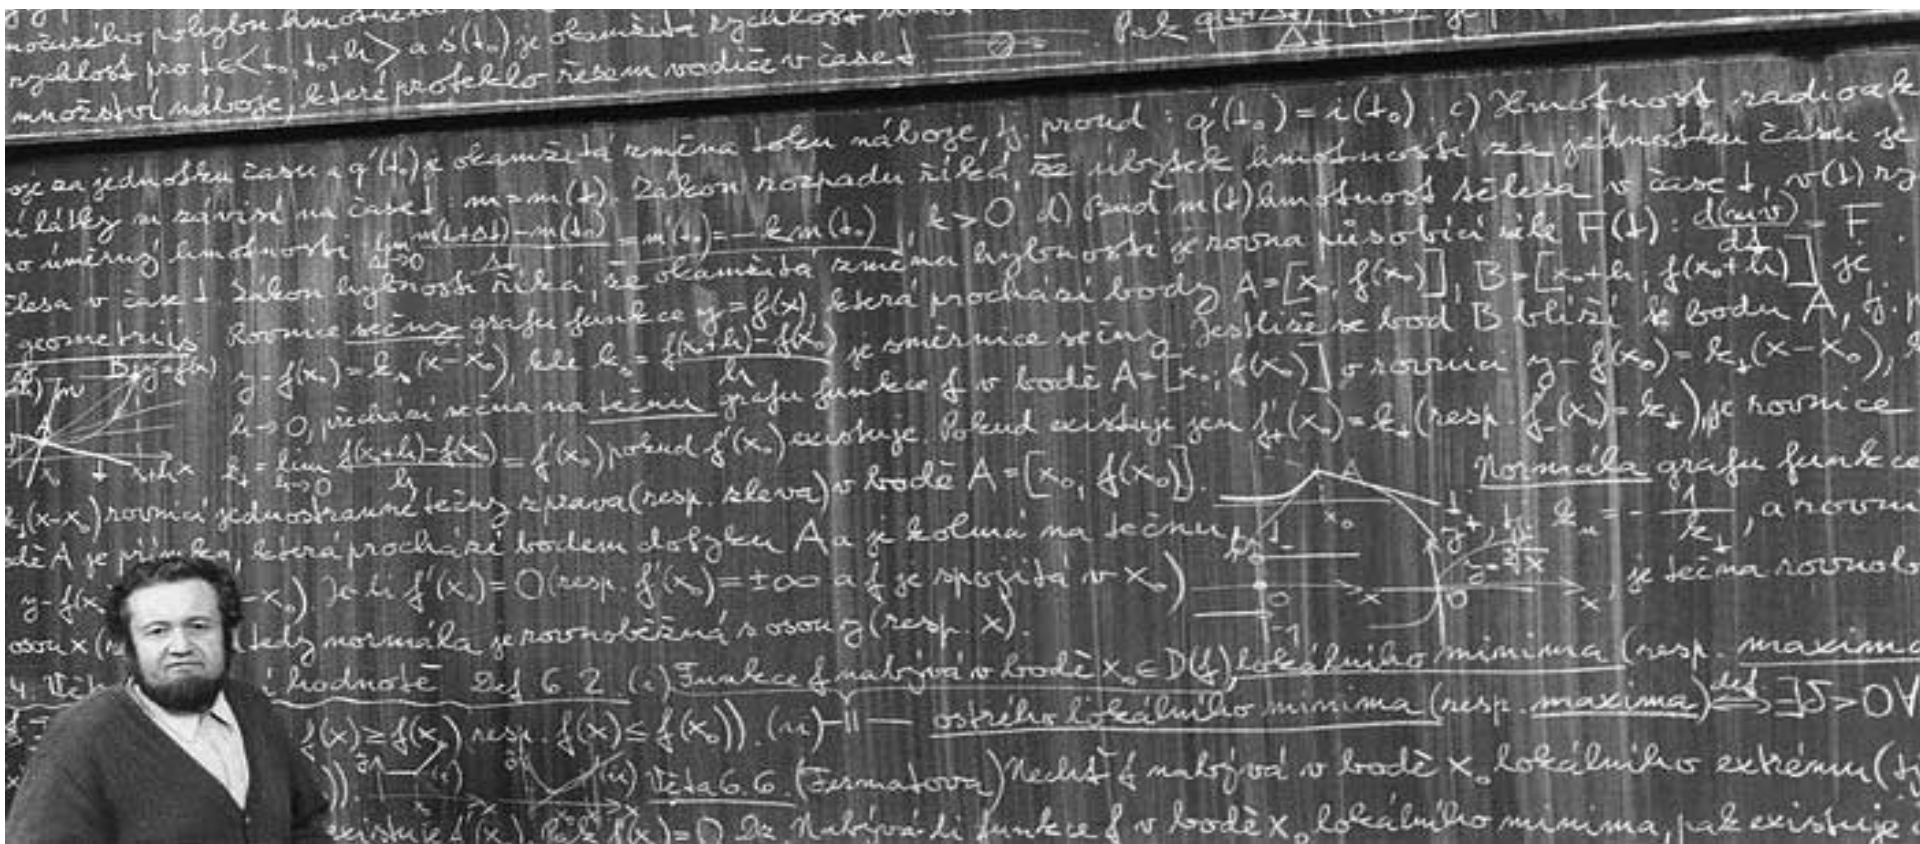 rychlost pro t∈<t₀, t₀+h> a s'(t₀) je okamžitá rychlost
množství náboje, které proteklo řezem vodiče v čase t
za jednotku času a q'(t₀) je okamžitá změna toku náboje, tj. proud : q'(t₀) = i(t₀). c) Hmotnost radioak
ní látky m závisí na čase t : m = m(t). Zákon rozpadu říká, že úbytek hmotnosti za jednotku času je
úměrný hmotnosti lim Δt→0 (m(t₀+Δt) - m(t₀))/Δt = m'(t₀) = -km(t₀), k > 0 d) Buď m(t) hmotnost tělesa v čase t, v(t) ry
tělesa v čase t. Zákon hybnosti říká, že okamžitá změna hybnosti je rovna působící síle F(t) : d(mv)/dt = F.
geometrii. Rovnice sečny grafu funkce y = f(x), která prochází body A = [x₀, f(x₀)], B = [x₀+h, f(x₀+h)] je
B y=f(x) y - f(x₀) = kₛ(x - x₀), kde kₛ = (f(x₀+h) - f(x₀))/h je směrnice sečny. Jestliže se bod B blíží k bodu A, tj.
h → 0, přechází sečna na tečnu grafu funkce f v bodě A = [x₀; f(x₀)] o rovnici y - f(x₀) = kₜ(x - x₀),
kₜ = lim h→0 (f(x₀+h) - f(x₀))/h = f'(x₀) pokud f'(x₀) existuje. Pokud existuje jen f'₊(x₀) = kₜ (resp. f'₋(x₀) = kₜ), je rovnice
(x - x₀) rovnicí jednostranné tečny zprava (resp. zleva) v bodě A = [x₀; f(x₀)]. Normála grafu funkce
A je přímka, která prochází bodem dotyku A a je kolmá na tečnu, kₙ = -1/kₜ, a rovni
y - f(x₀) - x₀). Je-li f'(x₀) = 0 (resp. f'(x₀) = ±∞ a f je spojitá v x₀) je tečna rovnobě
osou x tedy normála je rovnoběžná s osou y (resp. x).
4. hodnotě Def 6.2. (i) Funkce f nabývá v bodě x₀ ∈ D(f) lokálního minima (resp. maxima
f(x) ≥ f(x₀) resp. f(x) ≤ f(x₀)). (ii) -||- ostrého lokálního minima (resp. maxima) def ⟺ ∃δ > 0 ∀
Věta 6.6. (Fermatova) Nechť f nabývá v bodě x₀ lokálního extrému (tj
existuje f'(x₀). Pak f'(x₀) = 0 Dk. Nabývá-li funkce f v bodě x₀ lokálního minima, pak existuje